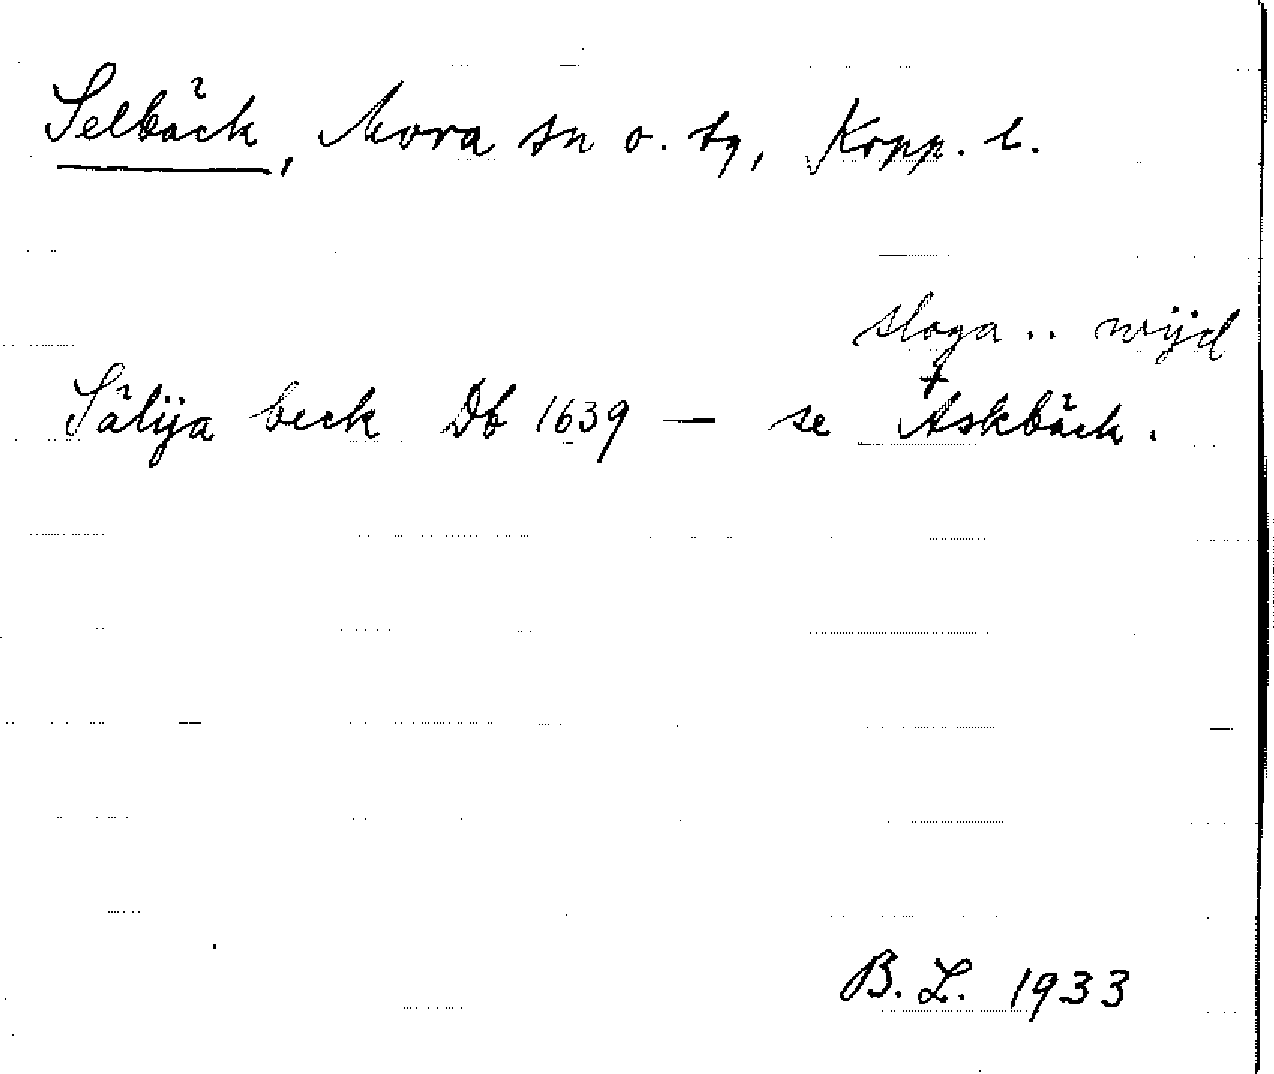 Selbäck, Mora sn o. by, Kopp. l.
sloga .. wijd
Sälija beck Db 1639 — se + Askbäck.
B. L. 1933